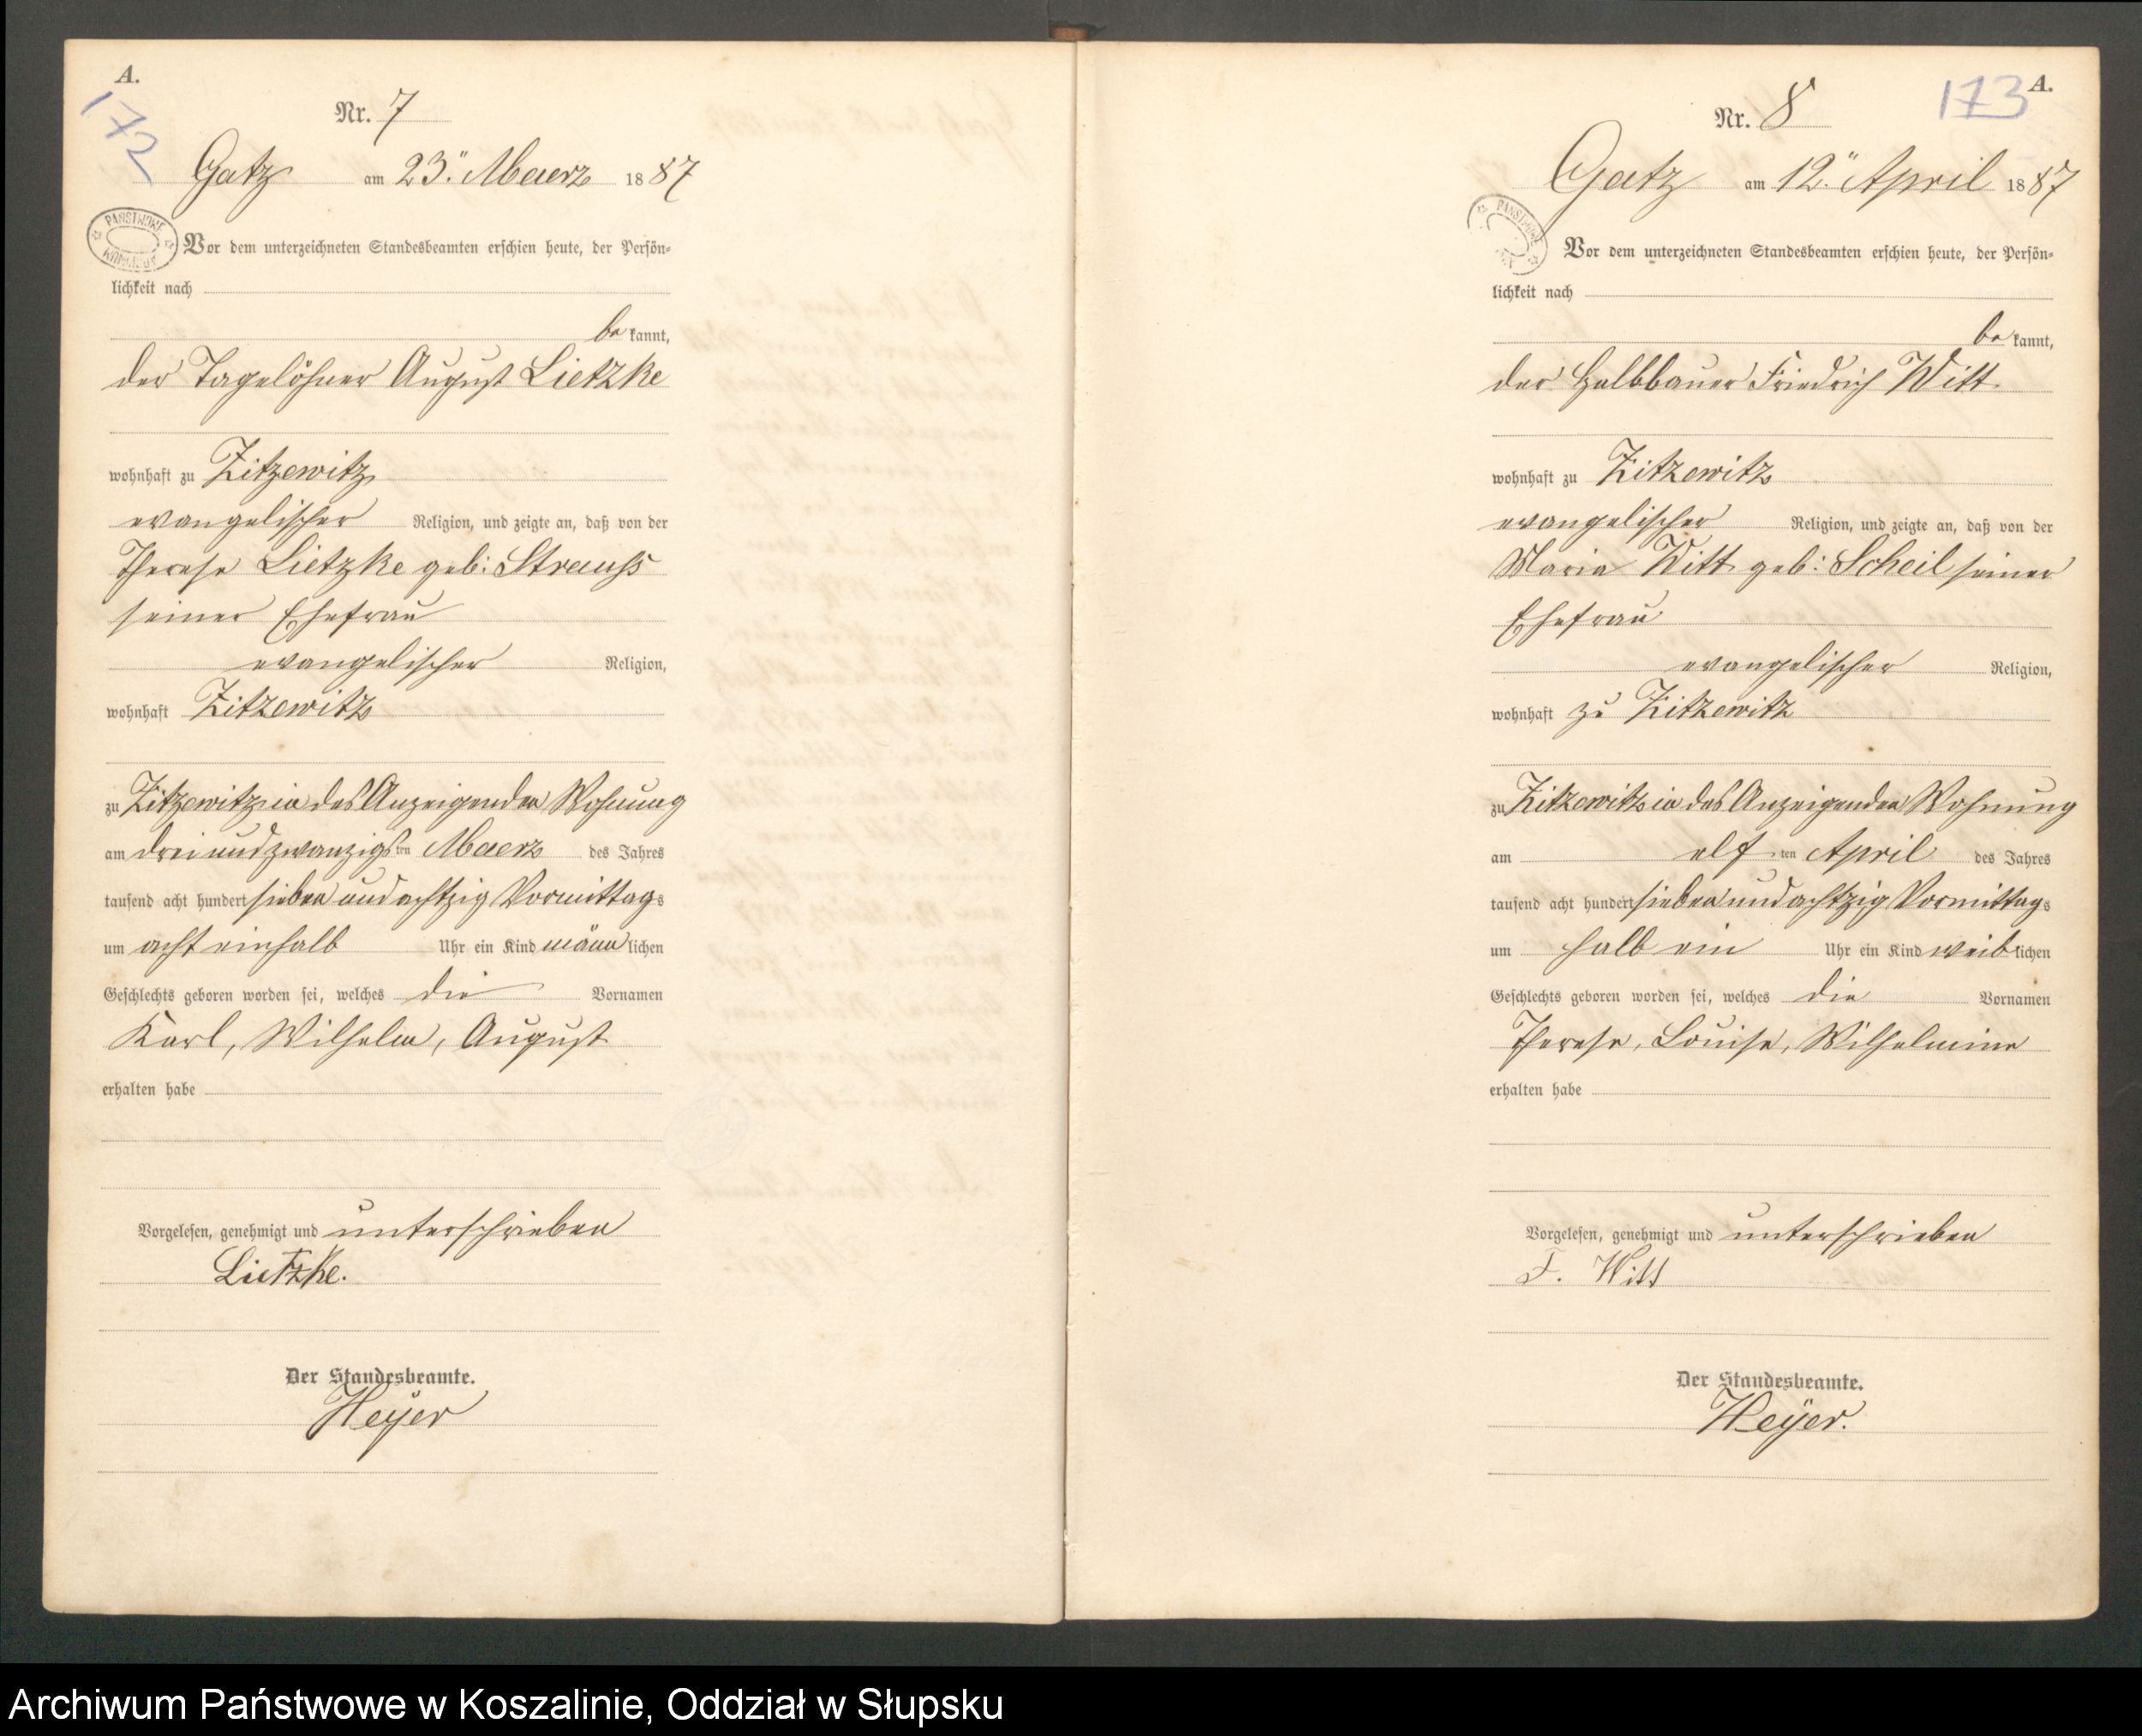 A.
172
Nr. 7
Gatz am 23.ⁿ Maerz 1887
PAŃSTWOWE
Vor dem unterzeichneten Standesbeamten erschien heute, der Persön-
lichkeit nach
be kannt,
der Tagelöhner August Lietzke
wohnhaft zu Zitzewitz
evangelischer Religion, und zeigte an, daß von der
Therese Lietzke geb: Strauss
seiner Ehefrau
evangelischer Religion,
wohnhaft Zitzewitz
zu Zitzewitz in des Anzeigenden Wohnung
am dreiundzwanzigsten Maerz des Jahres
tausend acht hundert sieben und achtzig Vormittags
um acht einhalb Uhr ein Kind männlichen
Geschlechts geboren worden sei, welches die Vornamen
Karl, Wilhelm, August
erhalten habe
Vorgelesen, genehmigt und unterschrieben
Lietzke.
Der Standesbeamte.
Heyer
173 A.
Nr. 8
Gatz am 12.ⁿ April 1887
Vor dem unterzeichneten Standesbeamten erschien heute, der Persön-
lichkeit nach
be kannt,
der Halbbauer Friedrich Witt
wohnhaft zu Zitzewitz
evangelischer Religion, und zeigte an, daß von der
Maria Witt geb: Scheil seiner
Ehefrau
evangelischer Religion,
wohnhaft zu Zitzewitz
zu Zitzewitz in des Anzeigenden Wohnung
am elften April des Jahres
tausend acht hundert sieben und achtzig Vormittags
um halb ein Uhr ein Kind weiblichen
Geschlechts geboren worden sei, welches die Vornamen
Therese, Louise, Wilhelmine
erhalten habe
Vorgelesen, genehmigt und unterschrieben
F. Witt
Der Standesbeamte.
Heyer.
Archiwum Państwowe w Koszalinie, Oddział w Słupsku